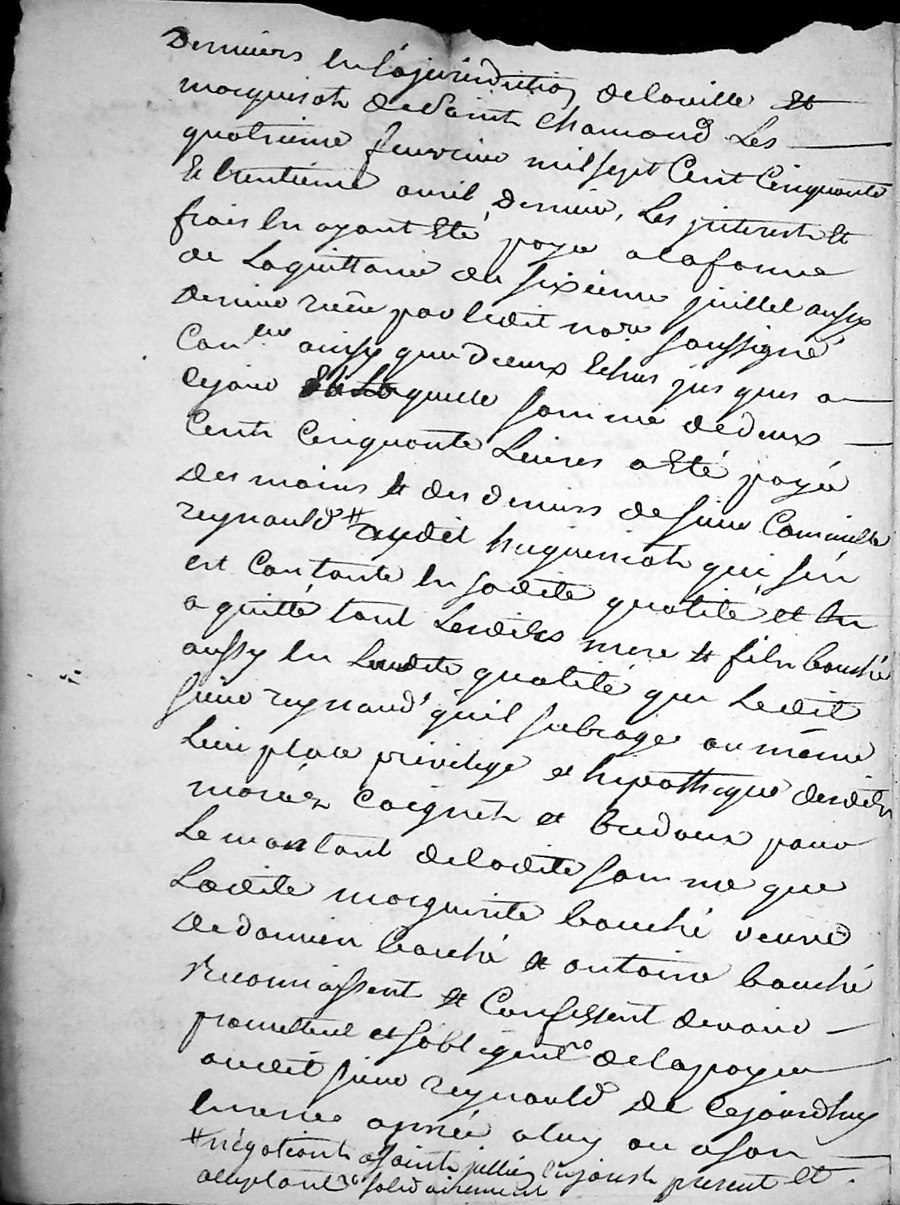 Derniers en la jurisdiction de la ville et
marquisat de Saint Chamond Les
quatrieme feuvrier mil sept Cent Cinquante
Et trentième avril dernier, Les jnterests Et
frais En ayant Eté payé a la forme
de La quittance du sixieme juillet aussy
dernier receue par ledit no.re soussigné
ainssy que d'ceux Echus jus ques a
ce jour Et La quelle somme de deux
Cents Cinquante Livres a Eté payée
Des mains et des deniers de sieur
reynauld # audit huguenot qui s'en
est Contante En sadite qualité, et En
a quitté tant Lesdits mere et fils bouché
aussy En Leurdite qualité que Ledit
sieur reynaud qu'il subroge au même
Lieu place privilege et hipotheque desdits
mariéz Coignet et pour
Le montant de ladite somme que
Ladite marguerite bouché veuve
De damien bouché et antoine bouché
reconnaissent et Confessent devoir
promettent et s'obligent de la payer
audit sieur reynauld De ce jourd'huy
En une année a luy ou a son
# négotiant a Saint jullien En jarest present et
acceptant solidairement